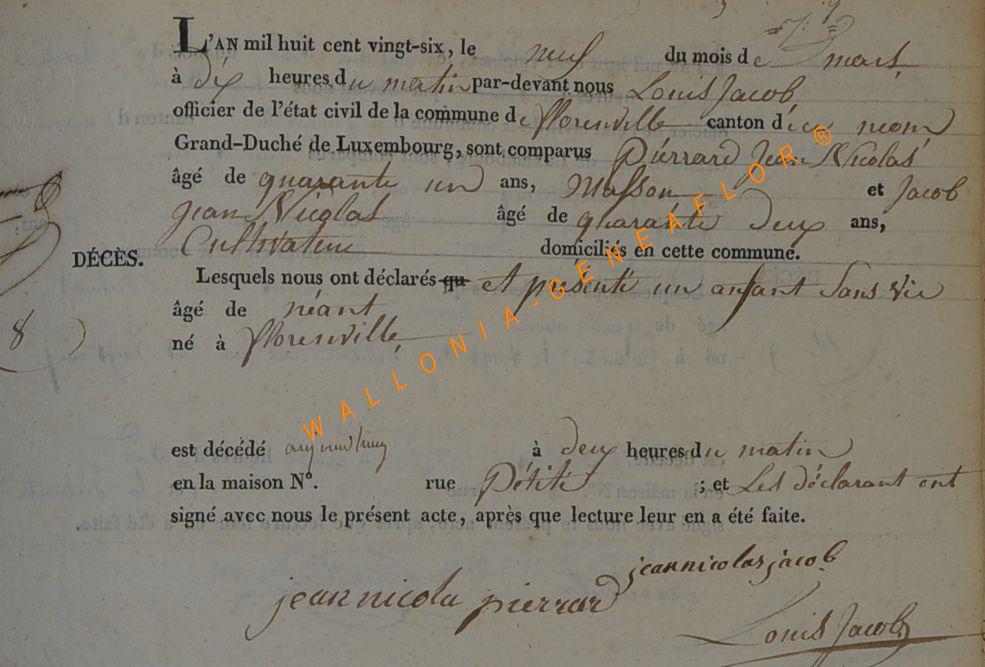 L'AN mil huit cent vingt-six, le neuf du mois de mars
à dix heures du matin par-devant nous Louis Jacob
officier de l'état civil de la commune de florenville canton d'icı nom
Grand-Duché de Luxembourg, sont comparus Piérrard Jean Nicolas
âgé de quarante un ans, Masson et Jacob
jean Nicolas âgé de quarante deux ans,
Cultivateur domiciliés en cette commune.
DÉCÈS.
Lesquels nous ont déclarés qu et présenté un anfant Sans vie
âgé de néant
8
né à florenville
est décédé aujourd'huy à deux heures du matin
en la maison N°. rue Pétite ; et Les déclarant ont
signé avec nous le présent acte, après que lecture leur en a été faite.
jeannicolasjacob
jean nicola pierrard
Louis Jacob
WALLONIA-GENEAFLOR®